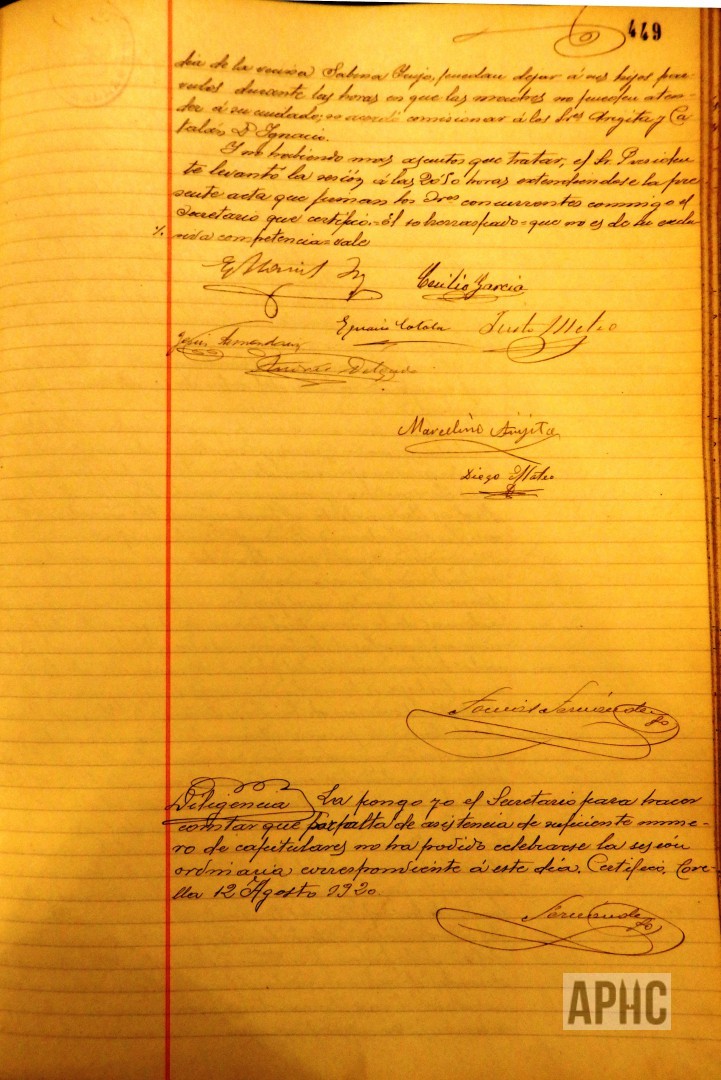 449
dir de la vecina Sabina puedan dejar á sus hijos par-
vulos durante las horas en que las madres no pueden aten-
der á su cuidado; se acordó comisionar á los Sres Angita y Ca-
talán D. Ignacio.
Y no habiendo mas asuntos que tratar, el Sr. Presiden-
te levantó la sesión á las 20'50 horas extendiendose la pre-
sente acta que firman los Sres concurrentes conmigo el
Secretario que certifico. = El sobrerraspado = que no es de su exclu-
siva competencia = vale
Cecilio Garcia
Justo Mateo
Jesús
Delgado
Marcelino Angita
Diego Mateo
Fernández
Diligencia La pongo yo el Secretario para hacer
constar que por falta de asistencia de suficiente nume-
ro de capitulares no ha podido celebrarse la sesión
ordinaria correspondiente á este dia. Certifico, Core-
lla 12 Agosto 1920
Fernández
APHC